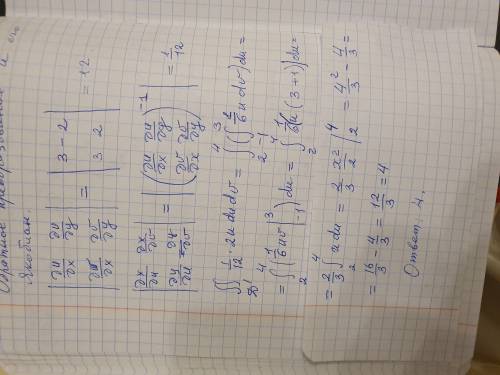 Обратное преобразование и его
Якобиан
| ∂u/∂x ∂u/∂y ; ∂v/∂x ∂v/∂y | = | 3 −2 ; 3 2 | = 12
| ∂x/∂u ∂x/∂v ; ∂y/∂u ∂y/∂v | = | ( ∂u/∂x ∂u/∂y ; ∂v/∂x ∂v/∂y )^−1 | = 1/12
∬_D' 1/12 · 2u du dv = ∫_2^4 ( ∫_−1^3 1/6 u dv ) du =
= ∫_2^4 ( 1/6 uv |_−1^3 ) du = ∫_2^4 1/6 (u (3+1)) du =
= 2/3 ∫_2^4 u du = 2/3 x²/2 |_2^4 = 4²/3 − 4/3 =
= 16/3 − 4/3 = 12/3 = 4
Ответ: 4.